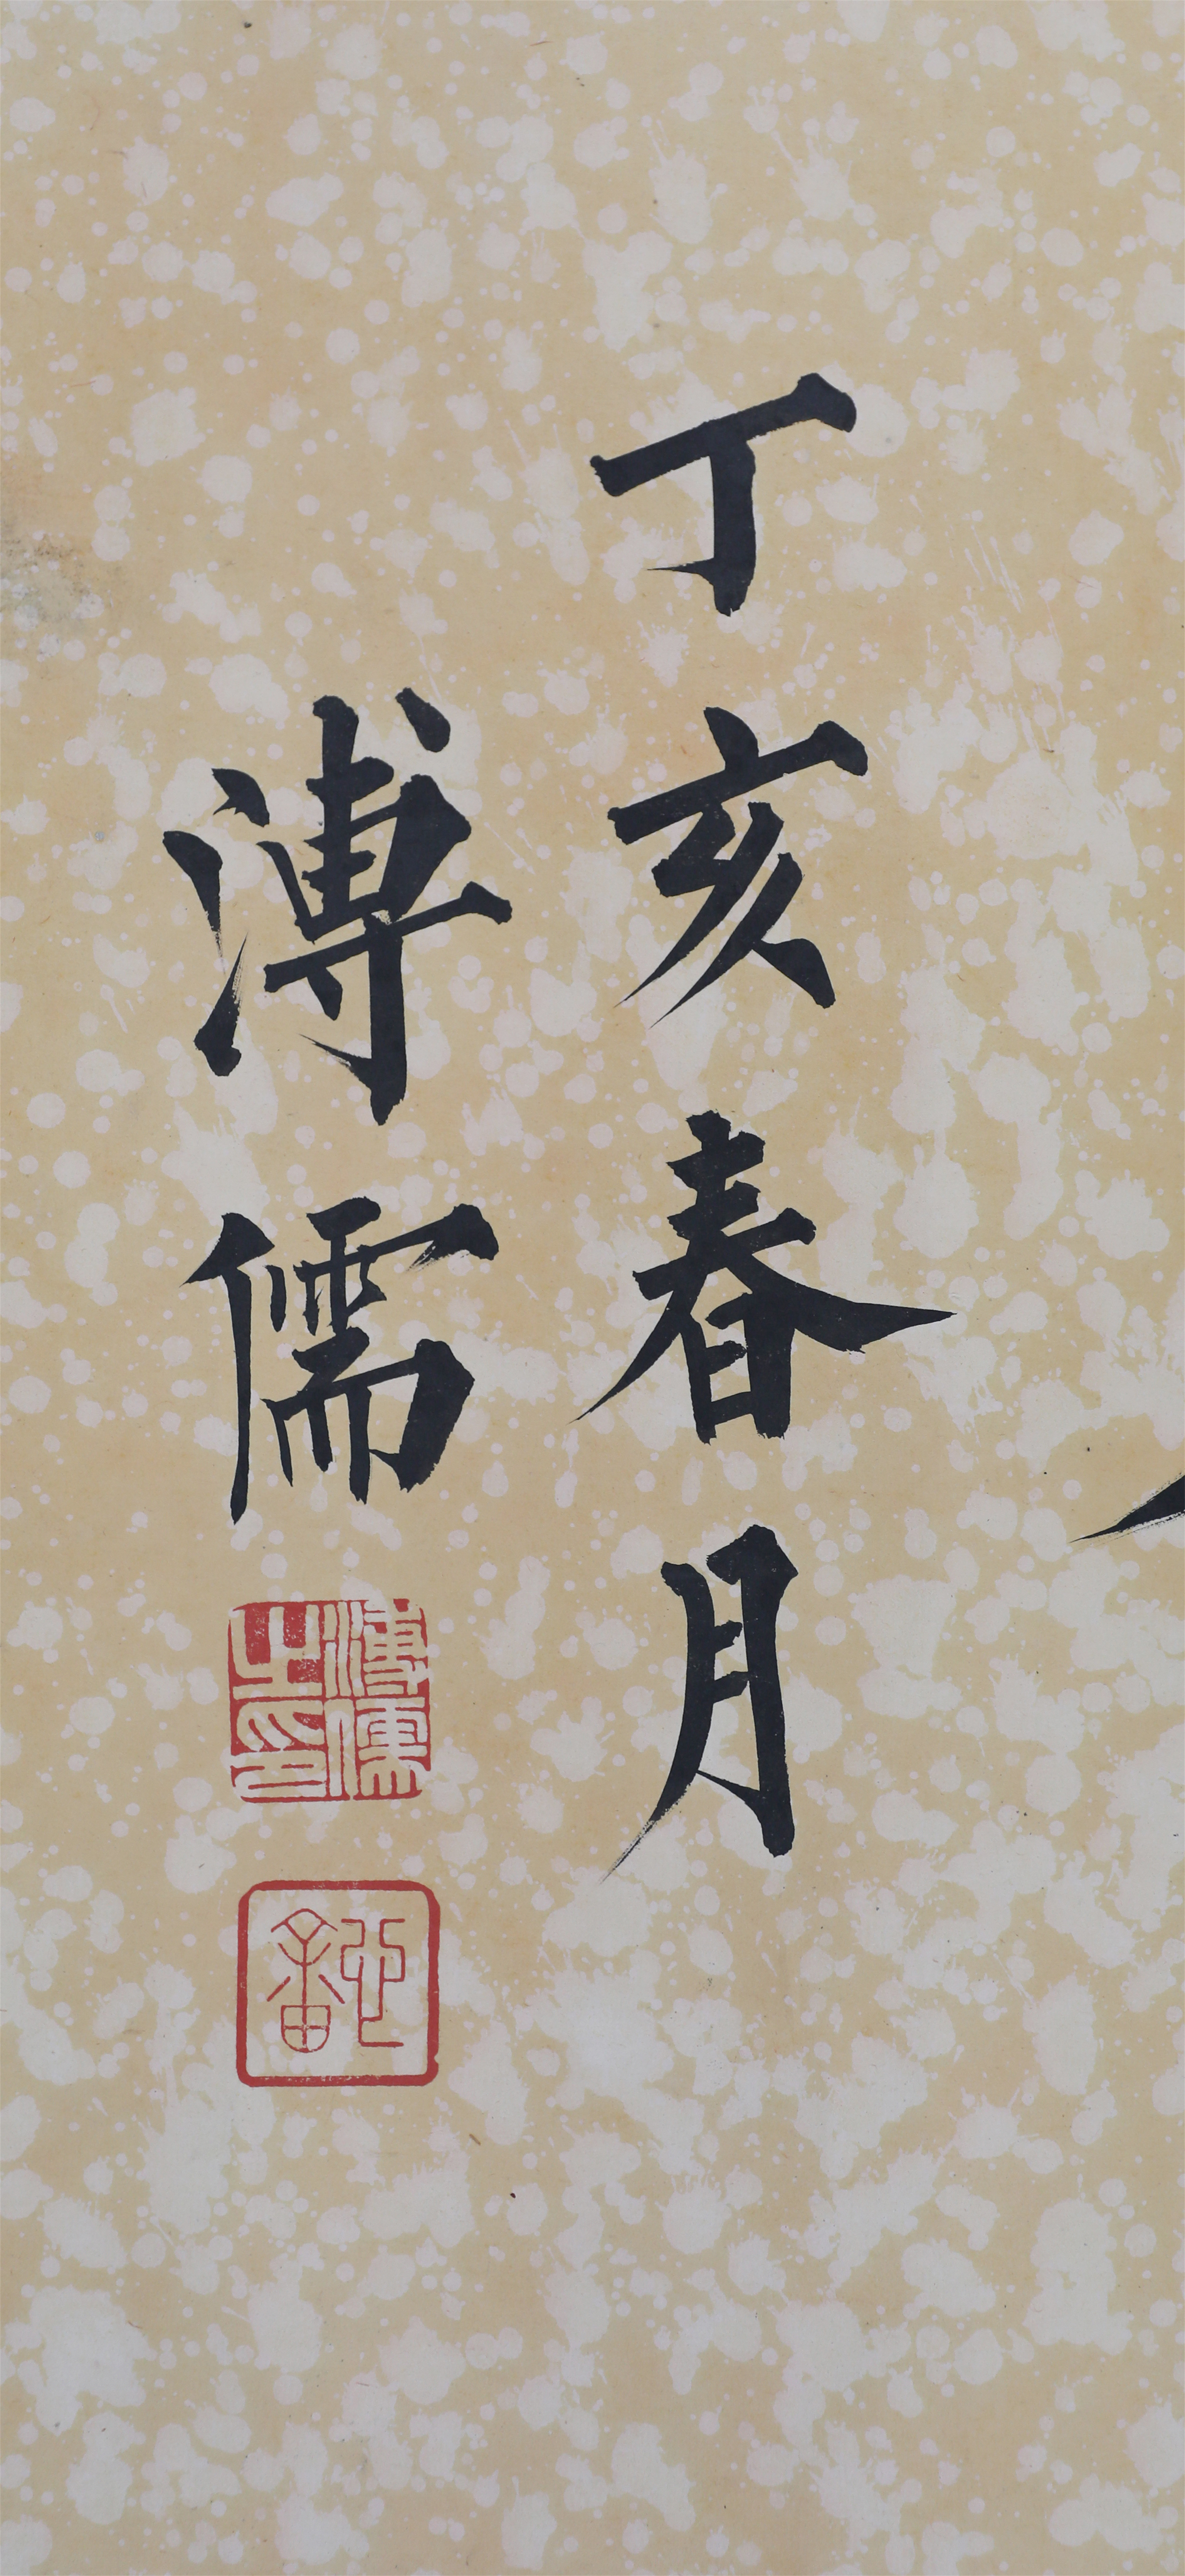 丁亥春月
溥儒
溥儒之印